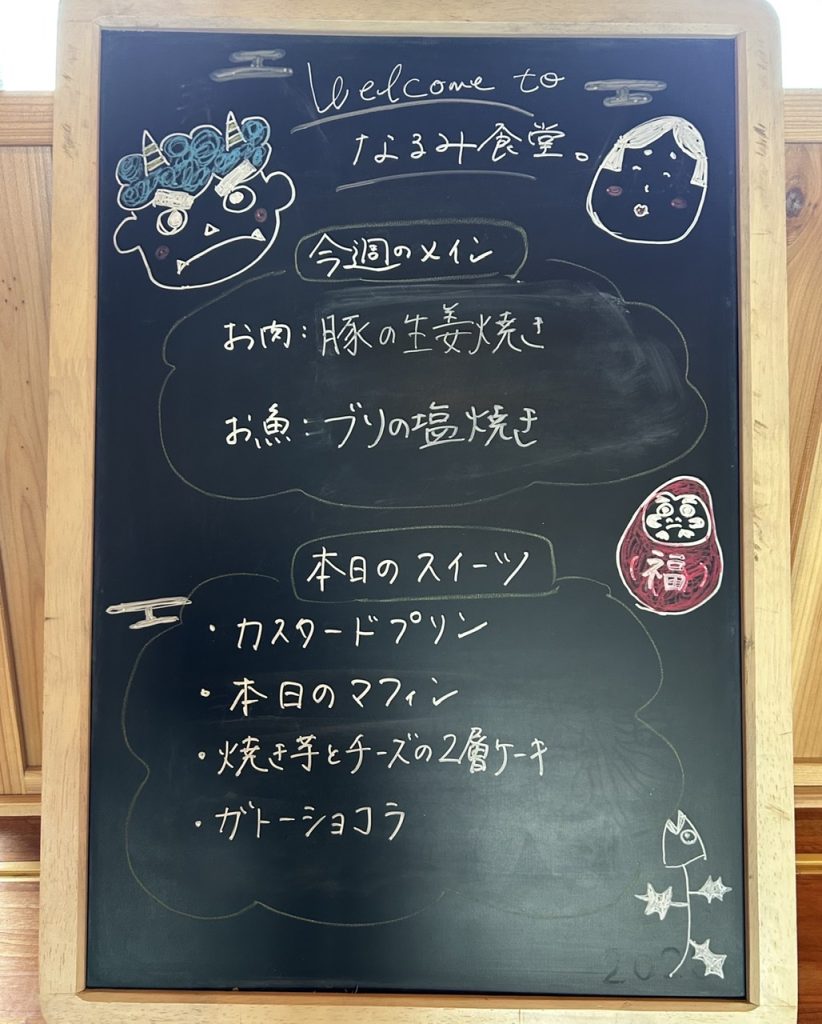 Welcome to
なるみ食堂。
今週のメイン
お肉：豚の生姜焼き
お魚：ブリの塩焼き
福
本日のスイーツ
・カスタードプリン
・本日のマフィン
・焼き芋とチーズの2層ケーキ
・ガトーショコラ